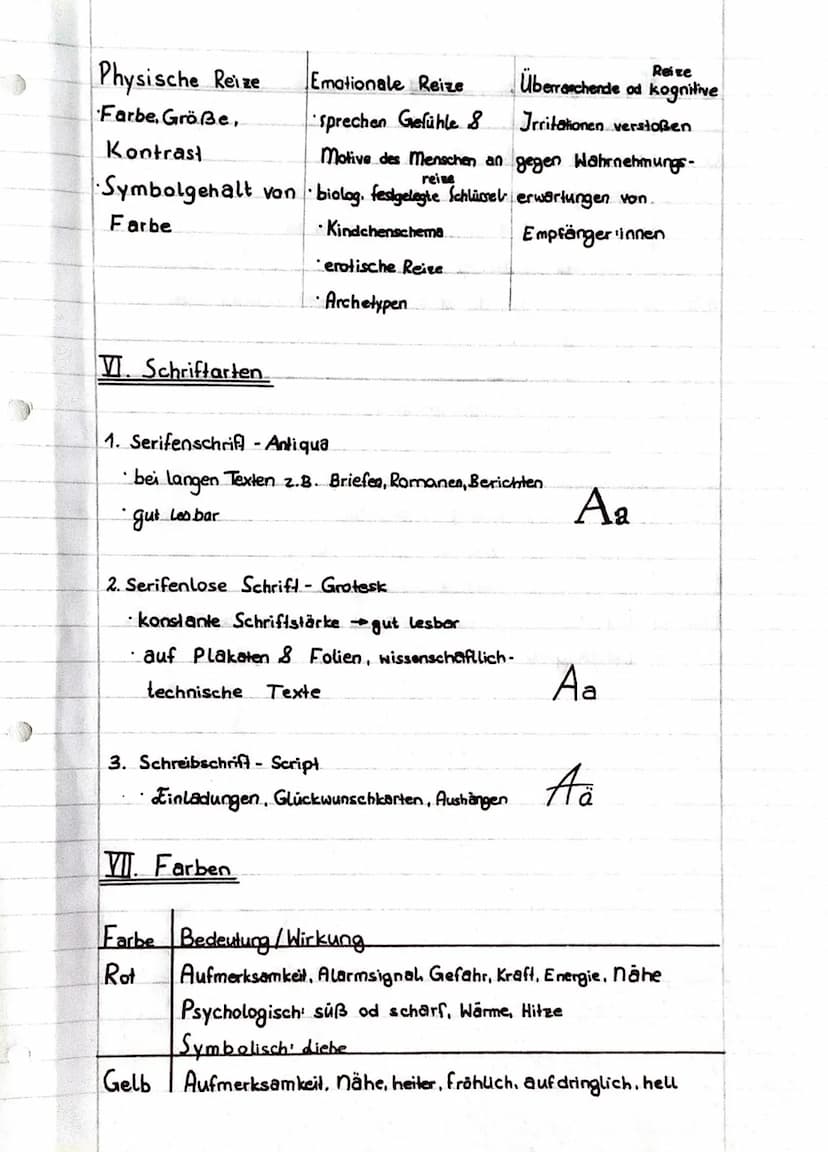 Physische Reize | Emotionale Reize | Überraschende od kognitive Reize
·Farbe, Größe, | ·sprechen Gefühle & | Irritationen verstoßen
Kontrast | Motive des Menschen an | gegen Wahrnehmungs-
·Symbolgehalt von | ·biolog. festgelegte Schlüsselreize | erwartungen von
Farbe | ·Kindchenschema | Empfänger*innen
·erotische Reize
·Archetypen
VI. Schriftarten
1. Serifenschrift - Antiqua
·bei langen Texten z.B. Briefen, Romanen, Berichten
·gut lesbar
Aa
2. Serifenlose Schrift - Grotesk
·konstante Schriftstärke → gut lesbar
·auf Plakaten & Folien, wissenschaftlich-
technische Texte
Aa
3. Schreibschrift - Script
·Einladungen, Glückwunschkarten, Aushängen
Aä
VII. Farben
Farbe | Bedeutung / Wirkung
Rot | Aufmerksamkeit, Alarmsignal, Gefahr, Kraft, Energie, Nähe
Psychologisch: süß od scharf, Wärme, Hitze
Symbolisch: Liebe
Gelb | Aufmerksamkeit, Nähe, heiter, fröhlich, aufdringlich, hell